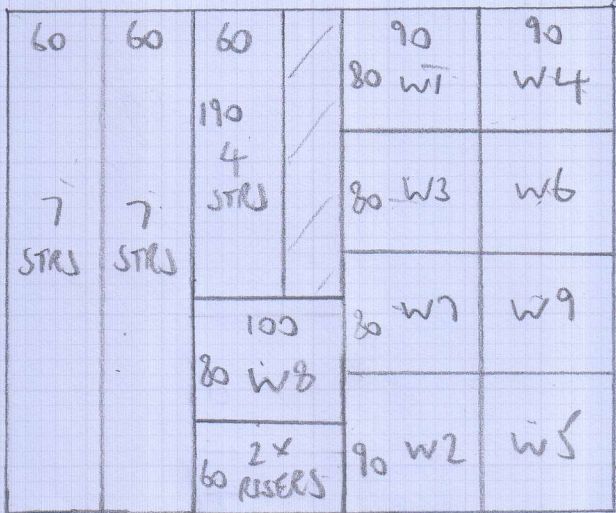 60
7
STRS
60
7
STRS
60
190
4
STRS
100
80 W8
60 2x
RISERS
90
80 W1
90
W4
80 W3
W6
80 W7
W9
90 W2
W5